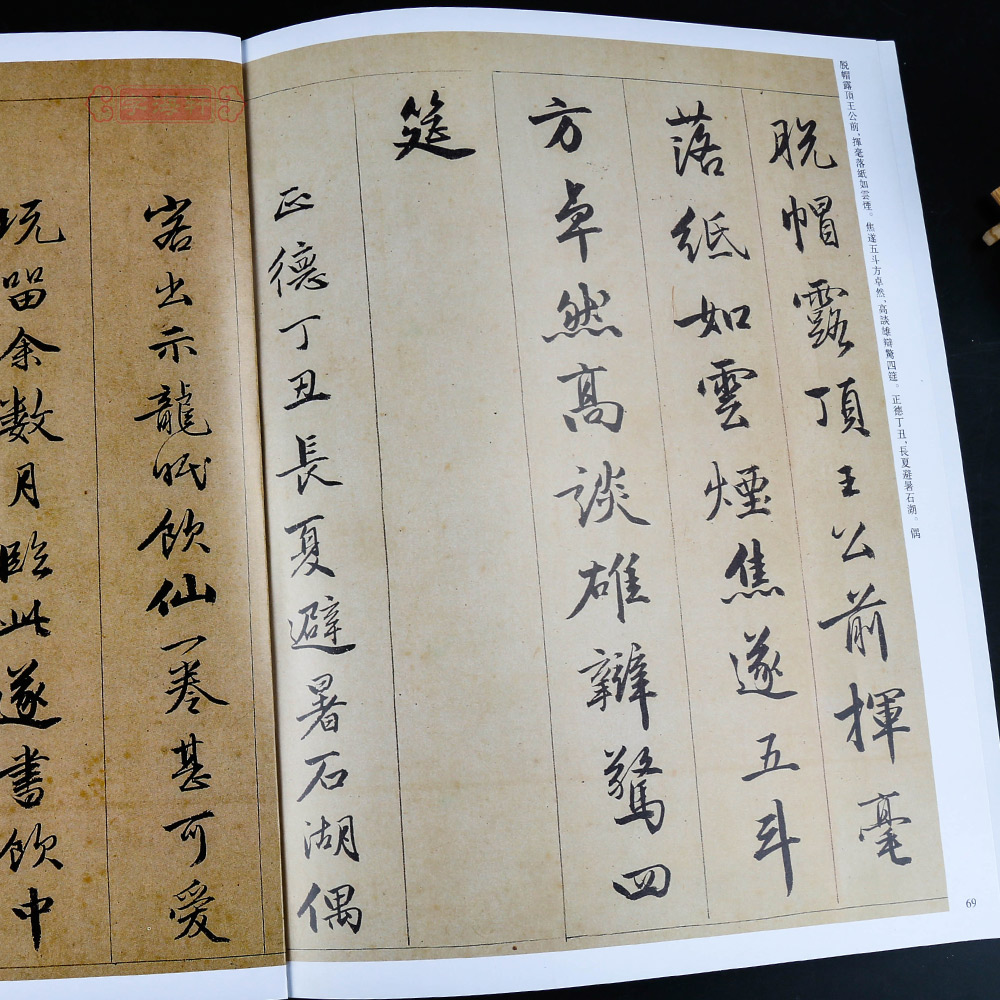 脱帽露頂王公前揮毫
落紙如雲煙焦遂五斗
方卓然高談雄辯驚四
筵
正德丁丑長夏避暑石湖偶
脱帽露頂王公前，揮毫落紙如雲煙。焦遂五斗方卓然，高談雄辯驚四筵。正德丁丑，長夏避暑石湖。偶
69
客出示龍眠飲仙一卷甚可愛
玩留余數月臨此遂書飲中